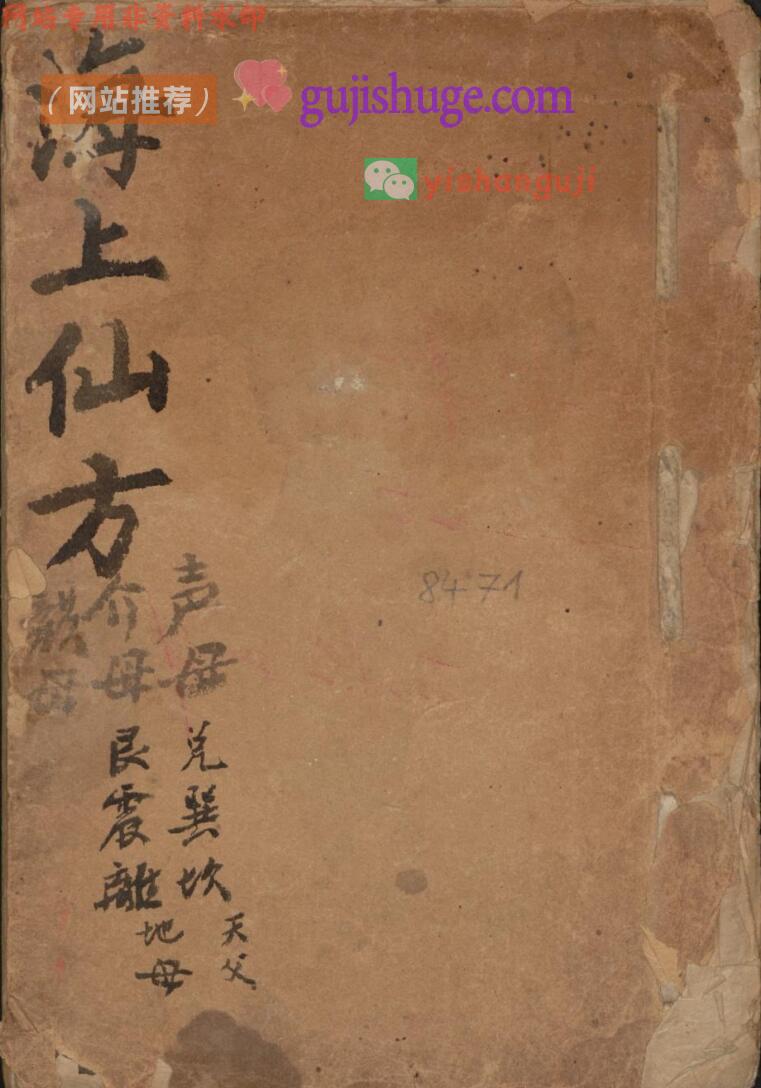 网站专用非资料水印
（网站推荐） gujishuge.com
yishanguji
海上仙方
声母
介母
韵母
兑巽坎
艮震離
天父
地母
8471